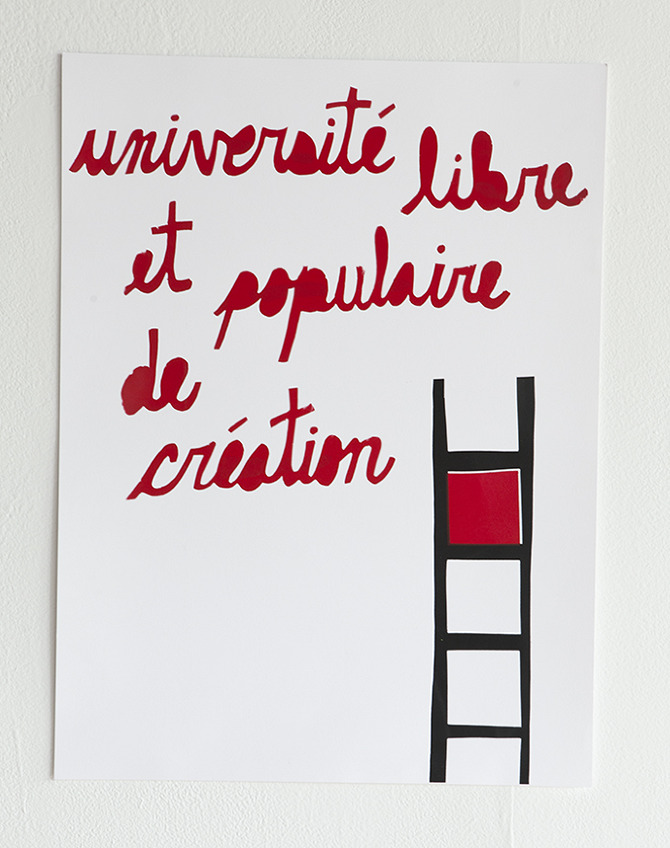 université libre
et populaire
de
création